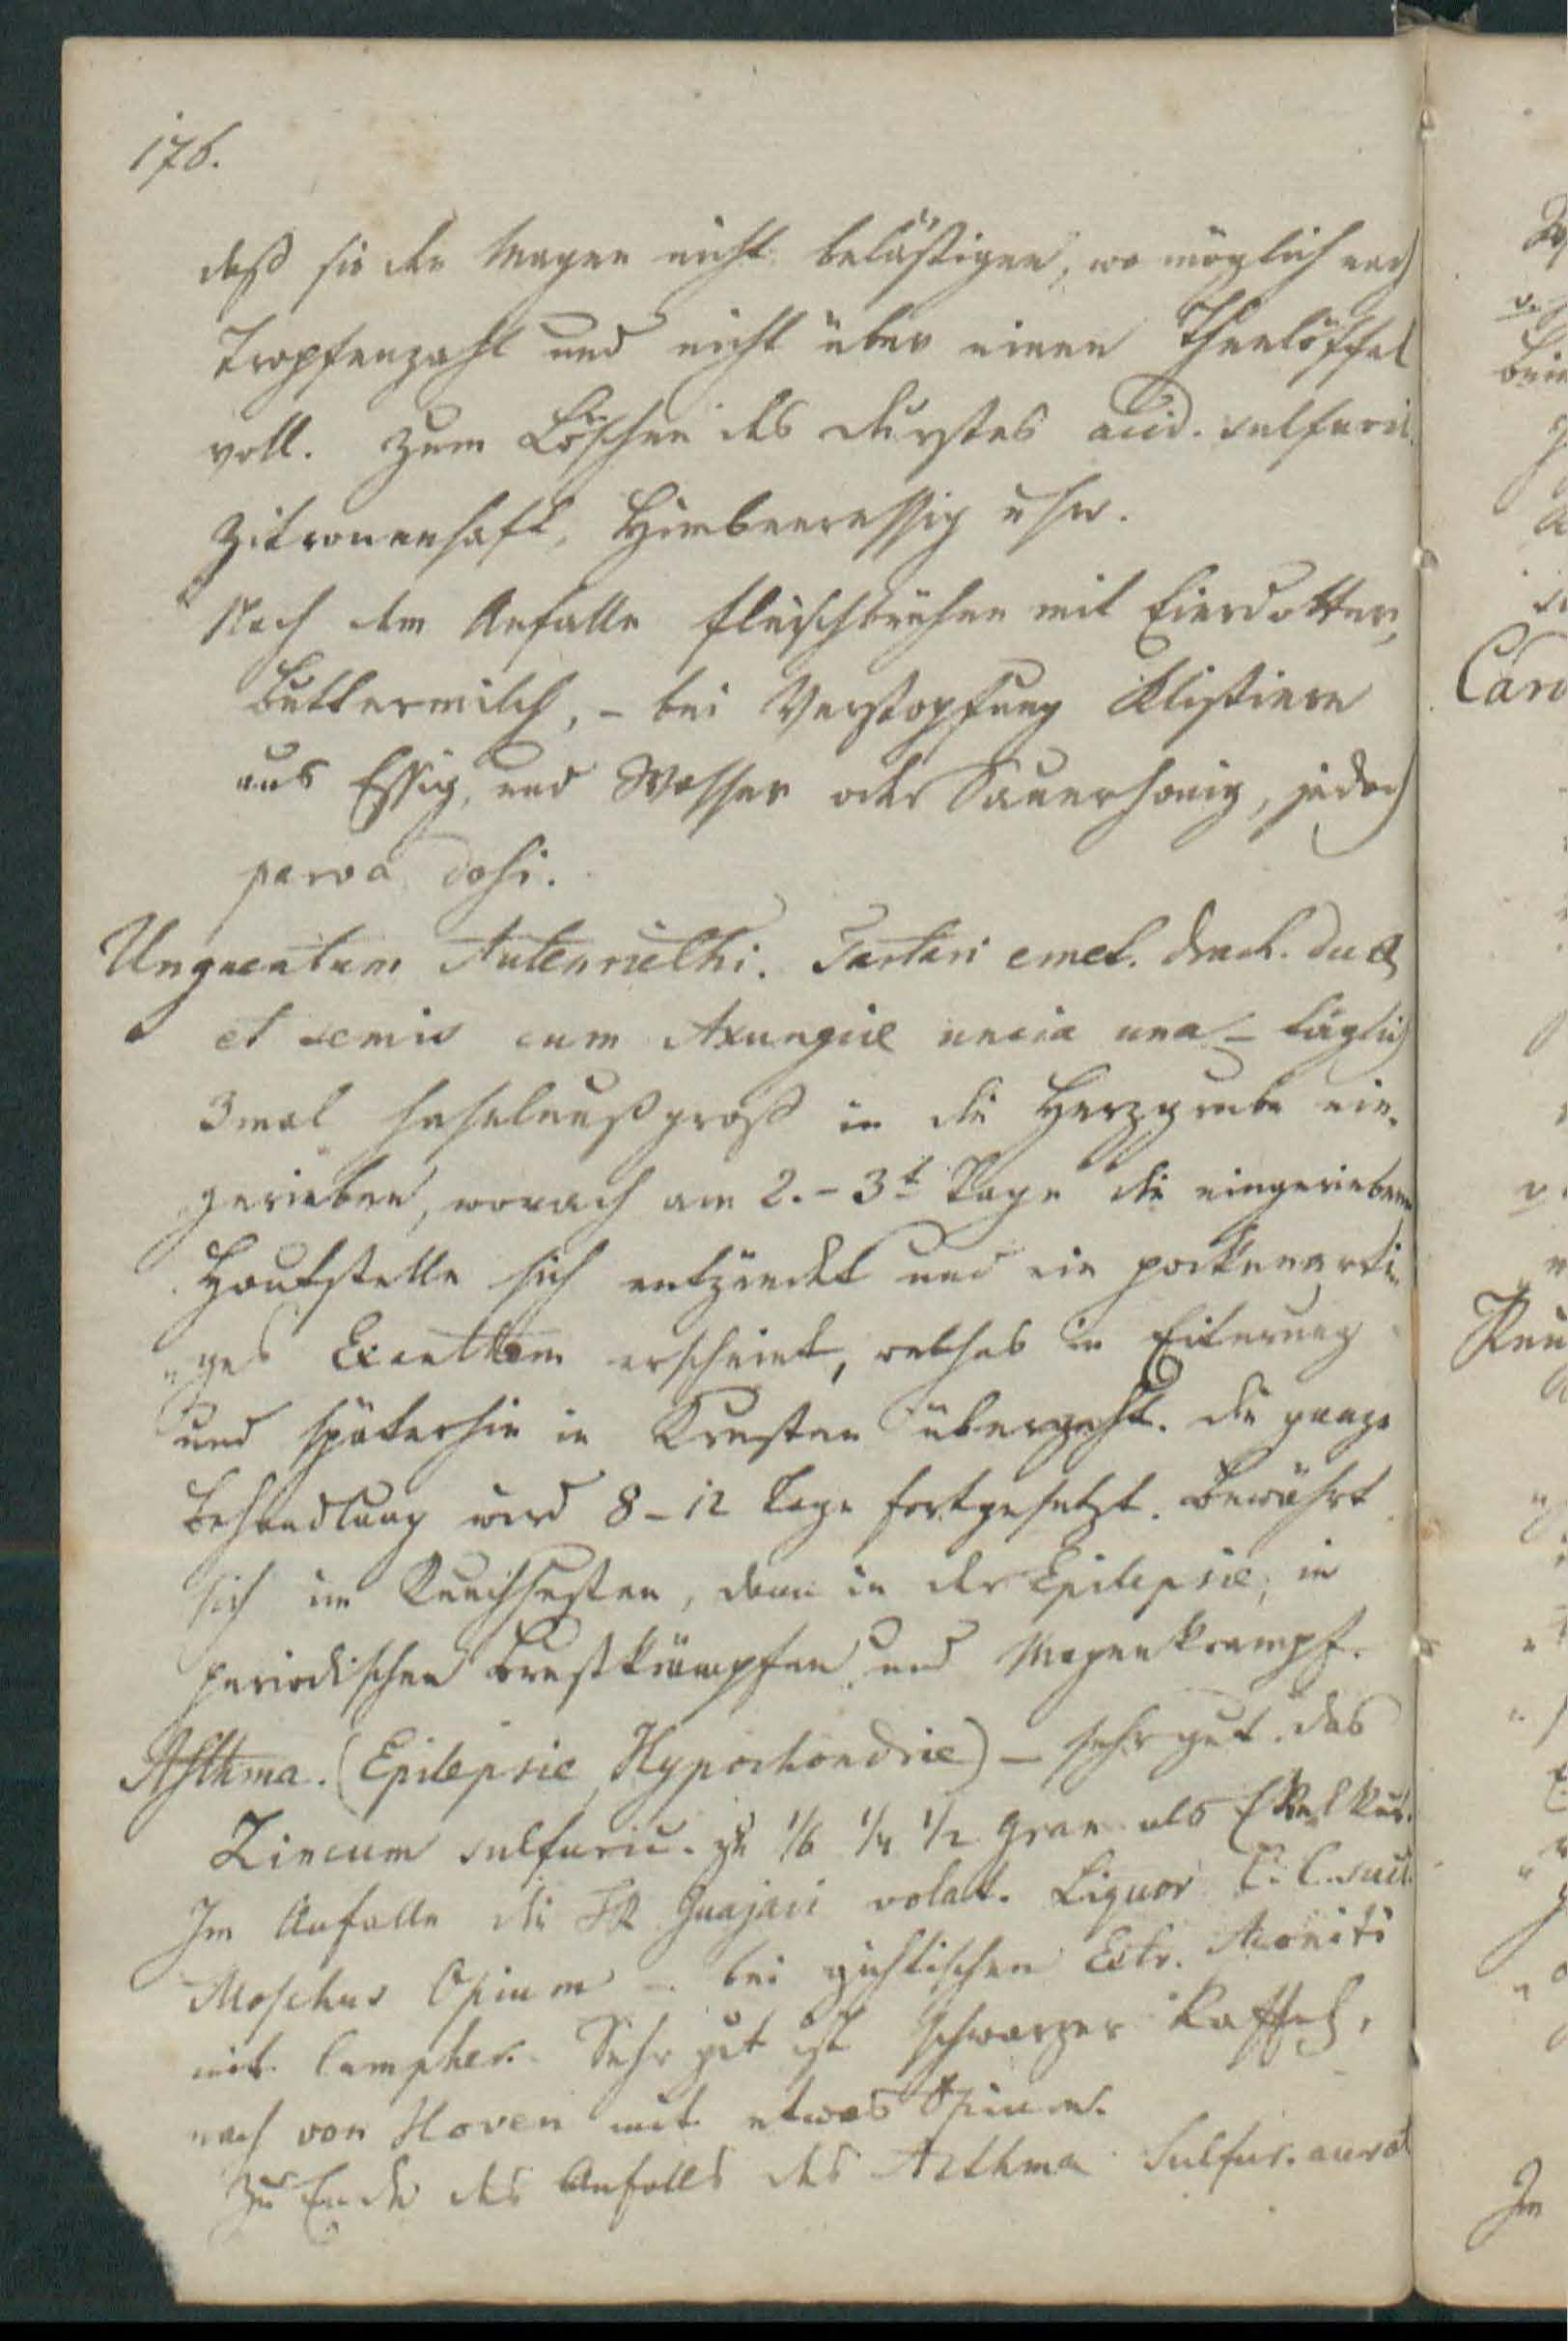 176.
daß sie den Magen nicht belästigen, wo möglich nach
Tropfenzahl und nicht über einen Theelöffel
voll. Zum Löschen des Durstes acid. sulfuric.
Zitronensaft, Himbeeressig usw.
Nach dem Anfalle Fleischbrühen mit Eierdotter,
Buttermilch, – bei Verstopfung Klistiere
aus Essig, und Wasser oder Sauerhonig, jedoch
parva dosi.
Unguentum Autenriethi. Tartari emet. drach. duae
et semis cum Axungiae uncia una – täglich
3mal haselnußgroß in die Herzgrube ein-
gerieben, worach am 2.–3t Tage die eingeriebene
Hautstelle sich entzündet und ein pockenarti-
ges Exanthem erscheint, welches in Eiterung
und späterhin in Krusten übergeht. Die ganze
Behandlung wird 8–12 Tage fortgesetzt. Bewährt
sich im Keuchhusten, dann in der Epilepsie, in
periodischen Brustkrämpfen und Magenkrampf.
Asthma. (Epilepsie, Hypochondrie) – sehr gut das
Zincum sulfuric. zu 1/6 1/4 1/2 Gran als Ekelkur.
Im Anfalle die Guajaci volat. Liquor C. C. succ.
Moschus Opium – bei gichtischen Extr. Aconiti
mit Campher. Sehr gut ist schwarzer Kaffeh,
nach von Hoven mit etwas Opium.
Zu Ende des Anfalls des Asthma Sulfur. aurat